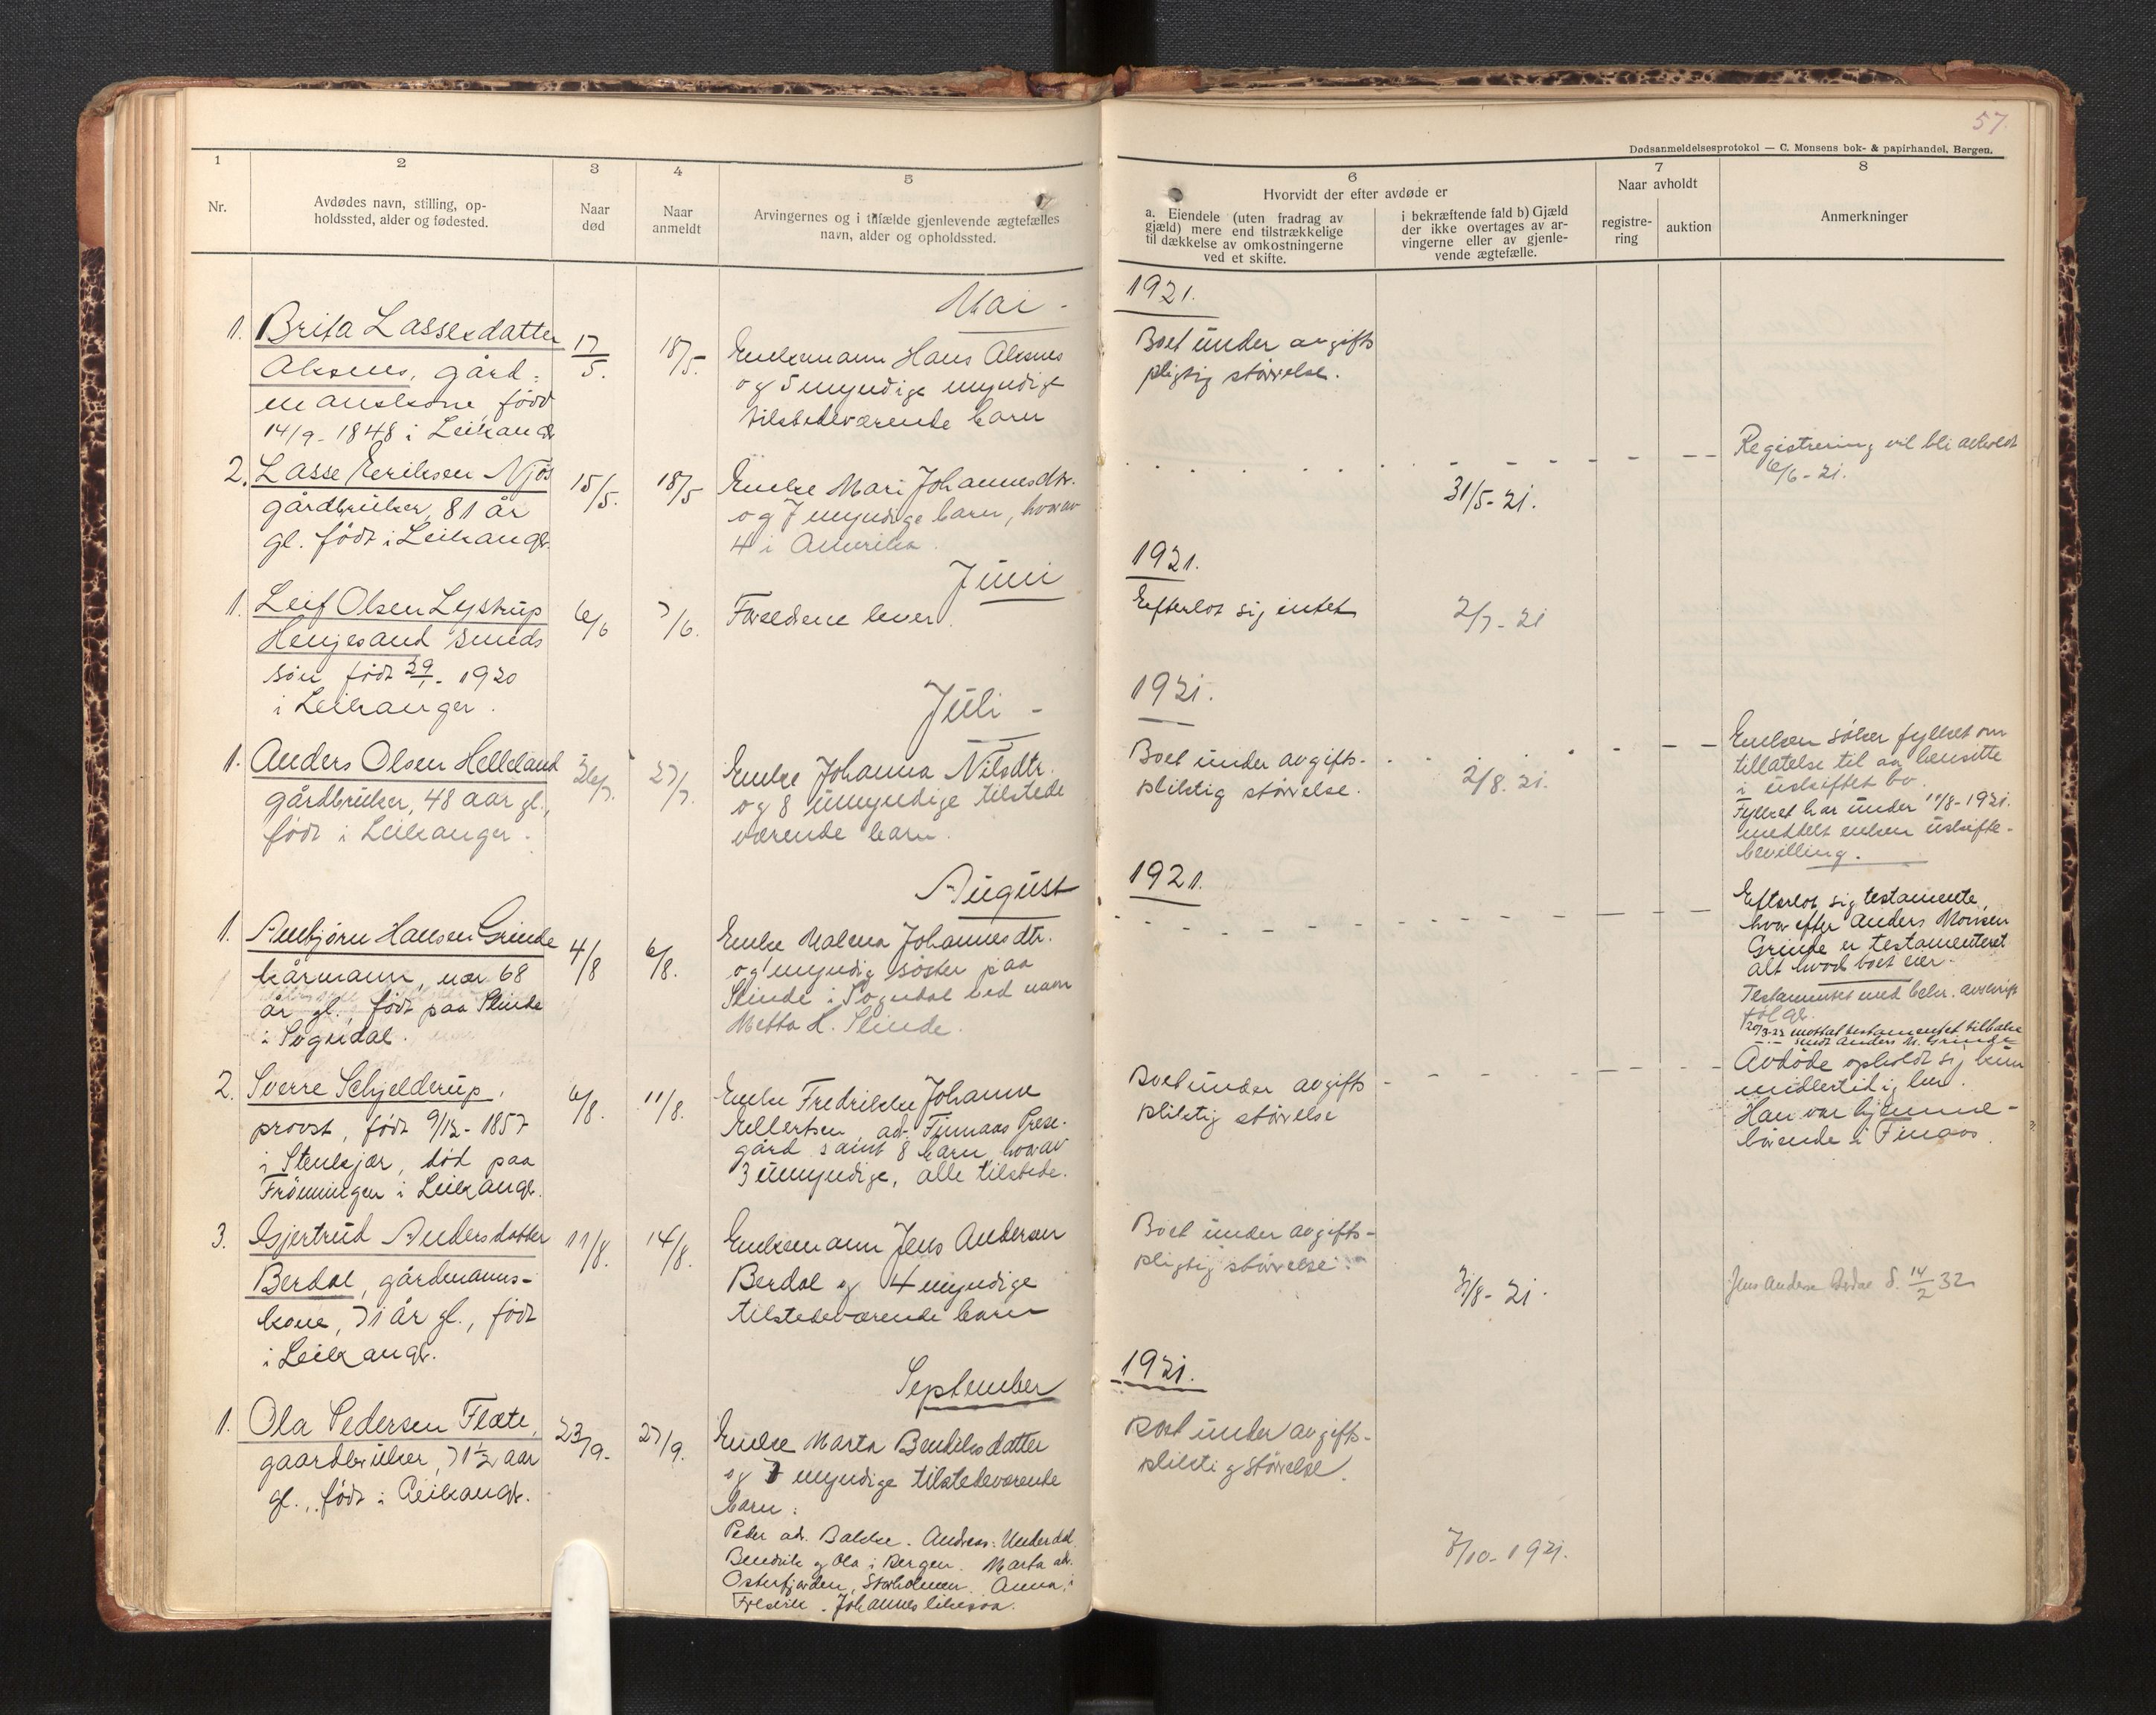 57.
Dødsanmeldelsesprotokol — C. Monsens bok- & papirhandel, Bergen.
1
2
3
4
5
6
7
8
Nr.
Avdødes navn, stilling, op-
holdssted, alder og fødested.
Naar
død
Naar
anmeldt
Arvingernes og i tilfælde gjenlevende ægtefælles
navn, alder og opholdssted.
Hvorvidt der efter avdøde er
a. Eiendele (uten fradrag av
gjæld) mere end tilstrækkelige
til dækkelse av omkostningerne
ved et skifte.
i bekræftende fald b) Gjæld
der ikke overtages av ar-
vingerne eller av gjenle-
vende ægtefælle.
Naar avholdt
registre-
ring
auktion
Anmerkninger
Mai - 1921.
1. Brita Lassesdatter
Aksnes, gård-
manskone, född
14/9- 1848 i Leikangr
17/5.
18/5.
Enkemann Hans Aksnes
og 5 myndige myndige
tilstedeværende barn
Boet under avgifts
pligtig størrelse.
2. Lasse Eeriksen Njøs
gårdbruker, 81 år
gl. født i Leikangr.
15/5.
18/5
Enke Mari Johannesdtr.
og 7 myndige barn, hvorav
4 i Amerika.
31/5- 21.
Registrering vil bli avholdt
6/6- 21.
Juni 1921.
1. Leif Olsen Lystrup
Henjesand smeds
søn født 29/1- 1920
i Leikanger.
6/6
7/6.
Foreldrene lever.
Efterlot sig intet
2/7- 21
Juli - 1921.
1. Anders Olsen Helleland
gårdbruker, 48 aar gl.,
født i Leikanger.
26/7.
27/7.
Enke Johanna Nilsdtr.
og 8 umyndige tilstede
værende barn.
Boet under avgifts-
pliktig størrelse.
2/8. 21.
Enken søker fylket om
tillatelse til aa hensitte
i uskiftet bo.
Fylket har under 11/8- 1921.
meddelt enken uskifte-
bevilling.
August 1921.
1. Anbjørn Hansen Grinde
kårmann, nær 68
år gl., født paa Slinde
i Sogndal.
4/8
6/8.
Enke Malena Johannesdtr.
og 1 myndig søster paa
Slinde i Sogndal ved navn
Metta H. Slinde.
Efterlot sig testamente,
hvor efter Anders Monsen
Grinde er testamenteret
alt hvad boet eier.
Testamentet med bekr. avskrift
følgr.
20/3-22 mottat testamentet tilbake
sendt Anders M. Grinde
2. Sverre Schjelderup,
provst, født 9/12- 1857
i Stenkjær, död paa
Frönningen i Leikangr.
6/8.
11/8.
Enke Fredrikke Johanne
Ellertsen, adr. Finnaas Preste-
gård samt 8 barn, hvorav
3 umyndige, alle tilstede.
Boet under avgifts
pliktig størrelse
Avdøde opholdt sig kun
midlertidig her.
Han var hjemme-
hörende i Finnaas.
3. Gjertrud Andersdatter
Berdal, gårdmanns-
kone, 71 år gl., født
i Leikangr.
11/8.
14/8.
Enkemann Jens Andersen
Berdal og 4 myndige
tilstedeværende barn
Boet under avgifts-
pligtig størrelse.
31/8- 21.
Jens Andersen Berdal d. 14/2 32
September 1921.
1. Ola Pedersen Flæte,
gaardbruker, 71 1/2 aar
gl., født i Leikangr.
23/9.
27/9.
Enke Marta Bendiksdatter
og 7 myndige tilstedeværende
barn:
Peder ad. Balder. Andreas: Underdal
Bendik og Ola i Bergen. Marta adr.
Osterfjorden, Storholmen. Anna, i
Fresvik. Johannes likesaa.
Boet under avgifts-
pliktig størrelse.
7/10- 1921.